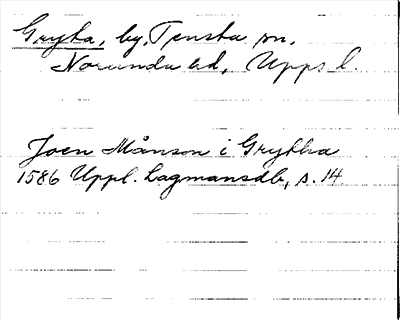 Gryta, by, Tensta sn,
Norunda hd, Upps l.
Joen Månson i Grythha
1586 Uppl. Lagmansdb, s. 14